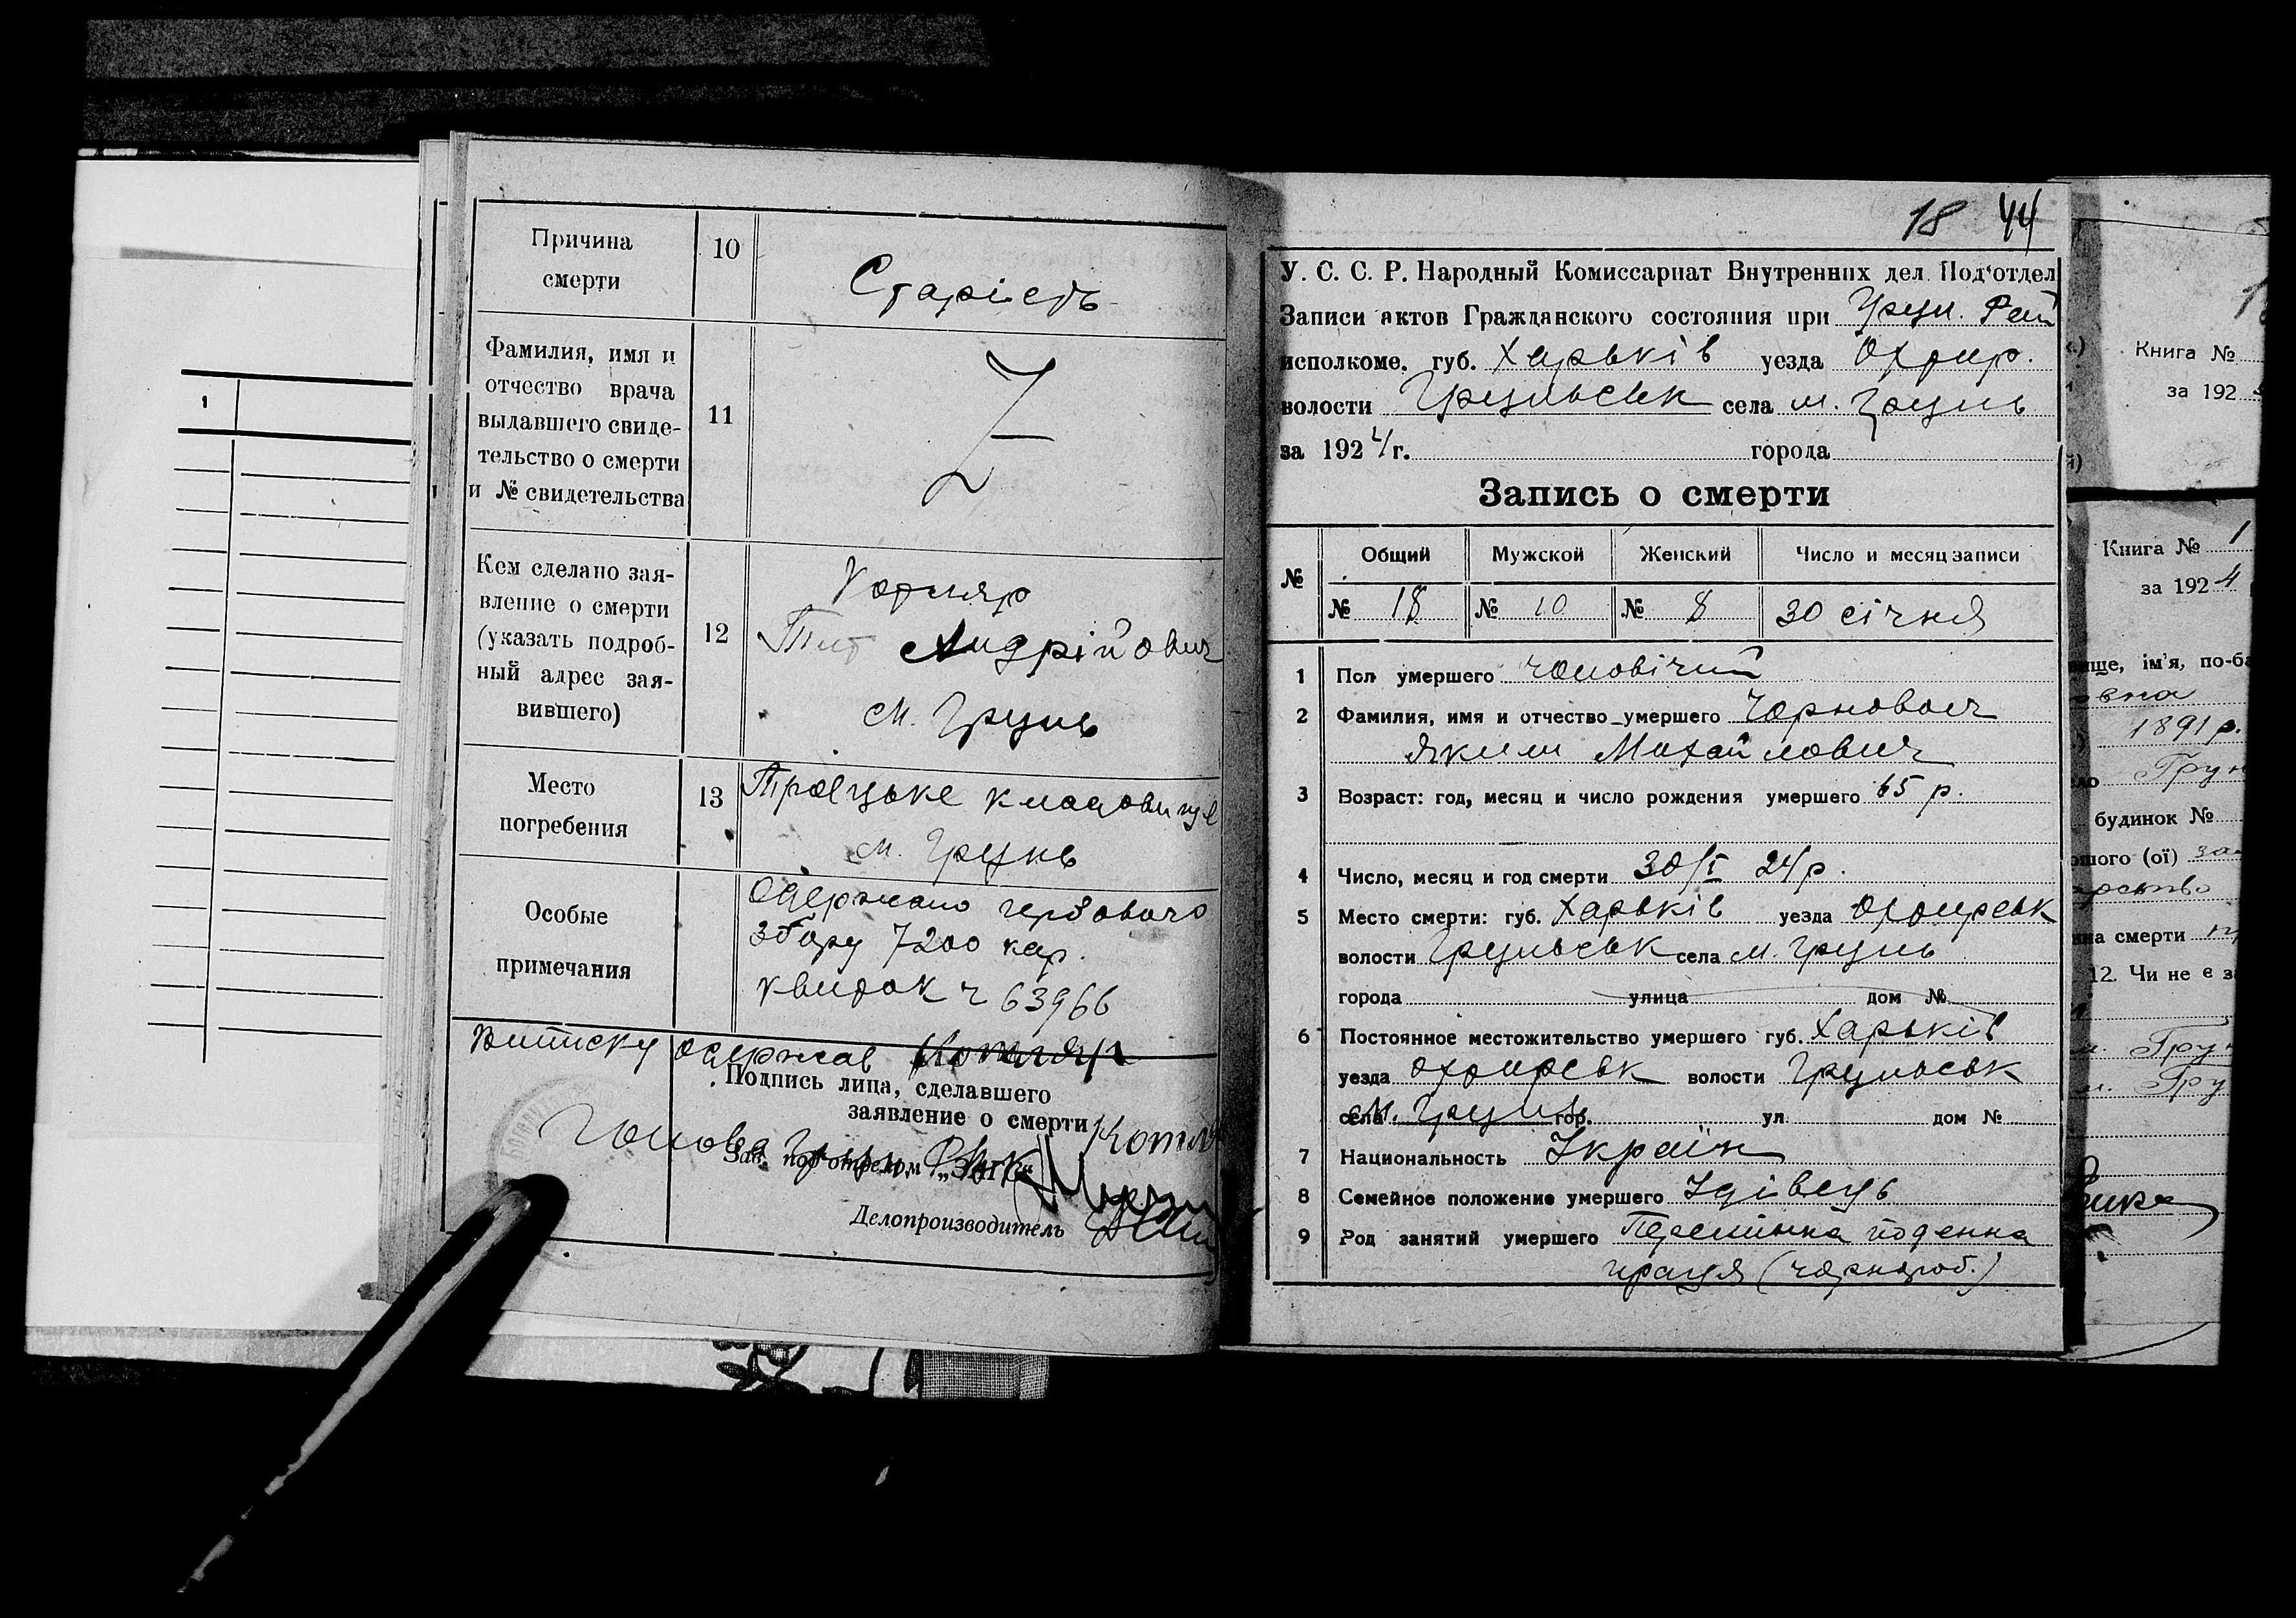 1
Причина
смерти
10
Старість
Фамилия, имя и
отчество врача
выдавшего свиде-
тельство о смерти
и № свидетельства
11
Z
Кем сделано зая-
вление о смерти
(указать подроб-
ный адрес зая-
вившего)
12
Тит Андрійович
м. Грунь
Место
погребения
13
Троєцьке кладовище
м. Грунь
Особые
примечания
Одержано гербового
збору 7200 кар.
квиток ч 63966
Виписку одержав Котляр
Подпись лица, сделавшего
заявление о смерти Котля
Голова Грун. РВК
Зав. под'отделом „ЗАГС“
Делопроизводитель
18 44
У. С. С. Р. Народный Комиссариат Внутренних дел. Под'отдел
Записи актов Гражданского состояния при Грун. Рай
исполкоме. губ. Харьків уезда Охтир.
волости Груньськ села м. Грунь
за 1924 г. города
Запись о смерти
№ Общий Мужской Женский Число и месяц записи
№ 18 № 10 № 8 30 січня
1 Пол умершего чоловічий
2 Фамилия, имя и отчество умершего Чорновол
Яким Михайлович
3 Возраст: год, месяц и число рождения умершего 65 р.
4 Число, месяц и год смерти 30/I 24 р.
5 Место смерти: губ. Харьків уезда Охтирськ
волости Груньськ села м. Грунь
города улица дом №
6 Постоянное местожительство умершего губ. Харьків
уезда Охтирськ волости Груньськ
села м. Грунь гор. ул. дом №
7 Национальность Україн
8 Семейное положение умершего Удівець
9 Род занятий умершего поденна
праця (чорнороб.)
Книга №
за 192
Книга № 1
за 1924
вище, ім'я, по-ба
овна
1891 р.
Грун
будинок №
ошого (ої)
на смерти
12. Чи не є з
м. Грун
м. Гру